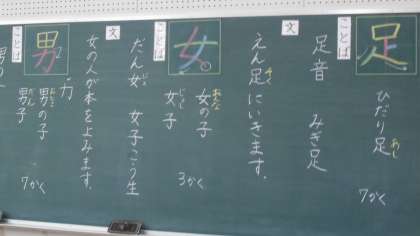 足
ことば
ひだり足
あし
7かく
足音　みぎ足
文
えん足にいきます。
そく
女
ことば
女の子
おんな
女子
じょし
3かく
だん女　女子こう生
じょ
文
女の人が本をよみます。
男
ことば
力
男の子
おとこ
男子
だん
7かく